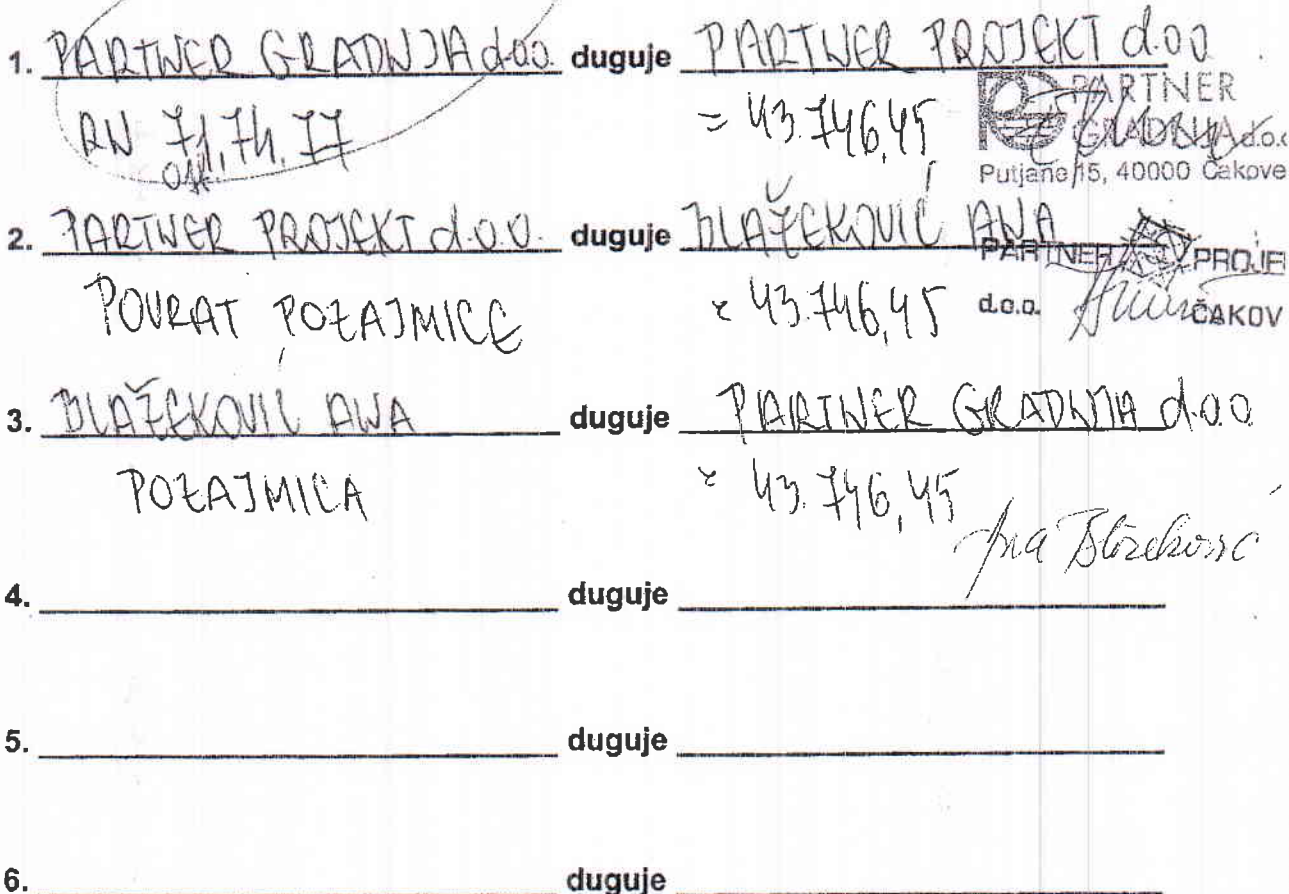 1. PARTNER GRADNJA d.o.o. duguje PARTNER PROJEKT d.o.o.
RN 71, 74, 77 = 43.746,45
PARTNER
GRADNJA d.o.o
Putjane 15, 40000 Čakove
2. PARTNER PROJEKT d.o.o. duguje BLAŽEKOVIĆ ANA
PARTNER PROJE
POVRAT POZAJMICE = 43.746,45
d.o.o. ČAKOV
3. BLAŽEKOVIĆ ANA duguje PARTNER GRADNJA d.o.o
POZAJMICA = 43.746,45
Ana Blažeković
4. duguje
5. duguje
6. duguje